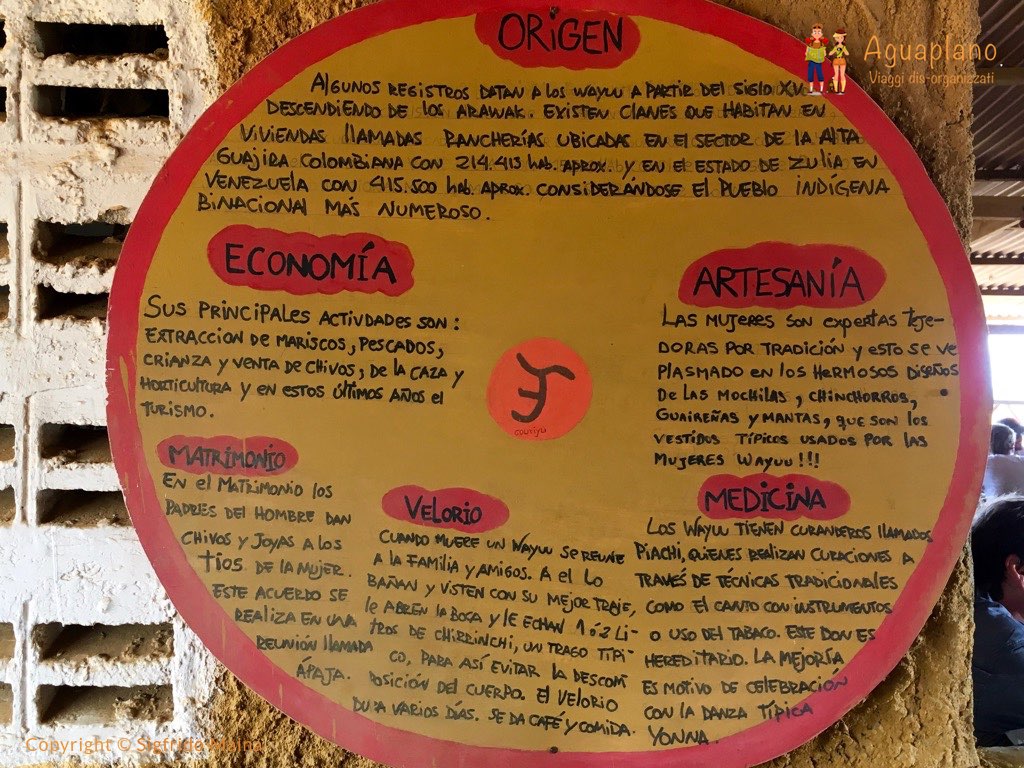 ORIGEN
ALGUNOS REGISTROS DATAN A LOS WAYUU A PARTIR DEL SIGLO XV
DESCENDIENDO DE LOS ARAWAK. EXISTEN CLANES QUE HABITAN EN
VIVIENDAS LLAMADAS RANCHERÍAS UBICADAS EN EL SECTOR DE LA ALTA
GUAJIRA COLOMBIANA CON 214.413 hab. APROX. Y EN EL ESTADO DE ZULIA EN
VENEZUELA CON 415.500 hab. APROX. CONSIDERÁNDOSE EL PUEBLO INDÍGENA
BINACIONAL MÁS NUMEROSO.
ECONOMÍA
SUS PRINCIPALES ACTIVDADES SON:
EXTRACCION DE MARISCOS, PESCADOS,
CRIANZA Y VENTA DE CHIVOS, DE LA CAZA Y
HORTICULTURA Y EN ESTOS ÚLTIMOS AÑOS EL
TURISMO.
ARTESANÍA
LAS MUJERES SON EXPERTAS TEJE-
DORAS POR TRADICIÓN Y ESTO SE VE
PLASMADO EN LOS HERMOSOS DISEÑOS
DE LAS MOCHILAS, CHINCHORROS,
GUAIREÑAS Y MANTAS, QUE SON LOS
VESTIDOS TÍPICOS USADOS POR LAS
MUJERES WAYUU!!!
MATRIMONIO
EN EL MATRIMONIO LOS
PADRES DEL HOMBRE DAN
CHIVOS Y JOYAS A LOS
TIOS DE LA MUJER.
ESTE ACUERDO SE
REALIZA EN UNA
REUNIÓN LLAMADA
ÁPAJA.
VELORIO
CUANDO MUERE UN WAYUU SE REUNE
A LA FAMILIA Y AMIGOS. A EL LO
BAÑAN Y VISTEN CON SU MEJOR TRAJE,
LE ABREN LA BOCA Y LE ECHAN 1 ó 2 LI-
TROS DE CHIRRINCHI, UN TRAGO TIPI-
CO, PARA ASÍ EVITAR LA DESCOM
POSICIÓN DEL CUERPO. EL VELORIO
DURA VARIOS DÍAS. SE DA CAFÉ Y COMIDA.
MEDICINA
LOS WAYUU TIENEN CURANDEROS LLAMADOS
PIACHI, QUIENES REALIZAN CURACIONES A
TRAVÉS DE TÉCNICAS TRADICIONALES
COMO EL CANTO CON INSTRUMENTOS
O USO DEL TABACO. ESTE DON ES
HEREDITARIO. LA MEJORÍA
ES MOTIVO DE CELEBRACIÓN
CON LA DANZA TÍPICA
YONNA.
Aguaplano
Viaggi dis-organizzati
Copyright ©